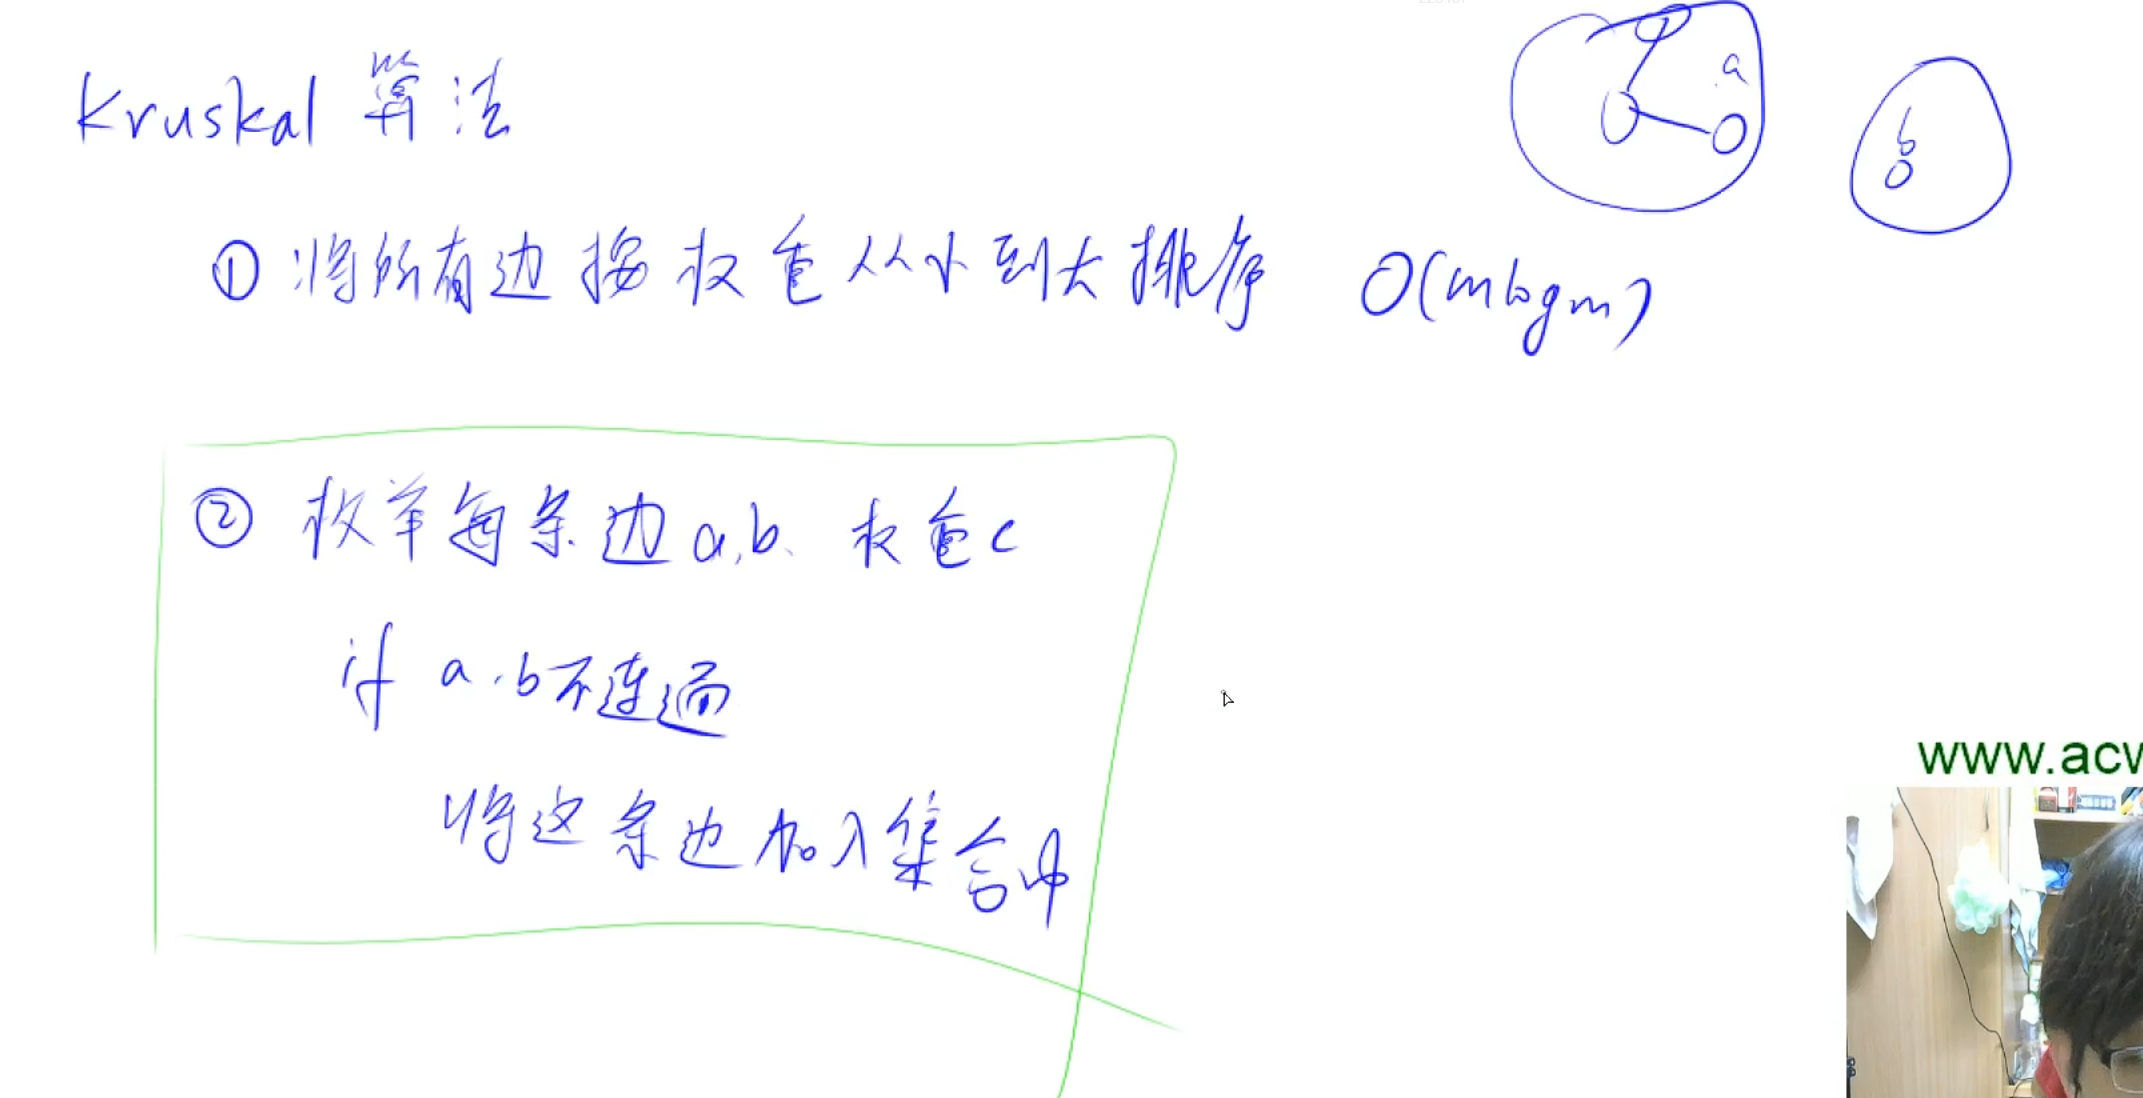 Kruskal 算法
a
b
① 将所有边按权重从小到大排序 O(mlogm)
② 枚举每条边 a,b、权重c
if a,b不连通
将这条边加入集合中
www.acw